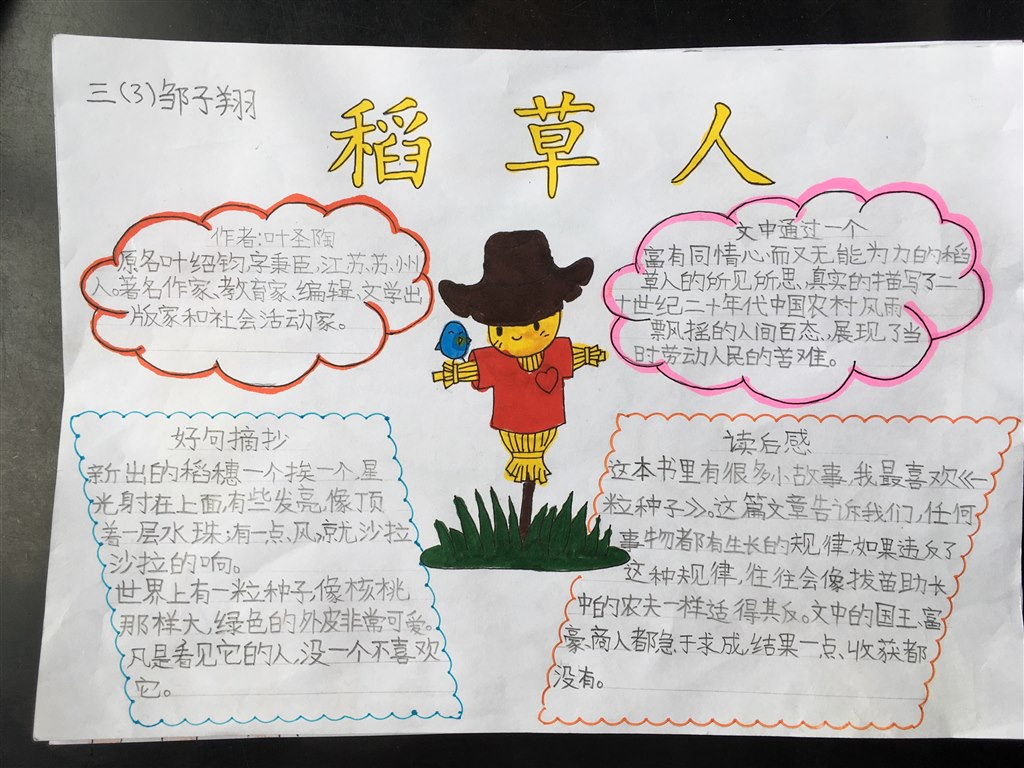 三(3)邹子翔
稻草人
作者:叶圣陶
原名叶绍钧,字秉臣,江苏苏州
人。著名作家、教育家、编辑、文学出
版家和社会活动家。
文中通过一个
富有同情心而又无能为力的稻
草人的所见所思,真实的描写了二
十世纪二十年代中国农村风雨
飘摇的人间百态,展现了当
时劳动人民的苦难。
好句摘抄
新出的稻穗一个挨一个,星
光射在上面,有些发亮,像顶
着一层水珠;有一点风,就沙拉
沙拉的响。
世界上有一粒种子,像核桃
那样大,绿色的外皮非常可爱。
凡是看见它的人,没一个不喜欢
它。
读后感
这本书里有很多小故事,我最喜欢《一
粒种子》。这篇文章告诉我们,任何
事物都有生长的规律,如果违反了
这种规律,往往会像拔苗助长
中的农夫一样适得其反。文中的国王、富
豪、商人都急于求成,结果一点收获都
没有。